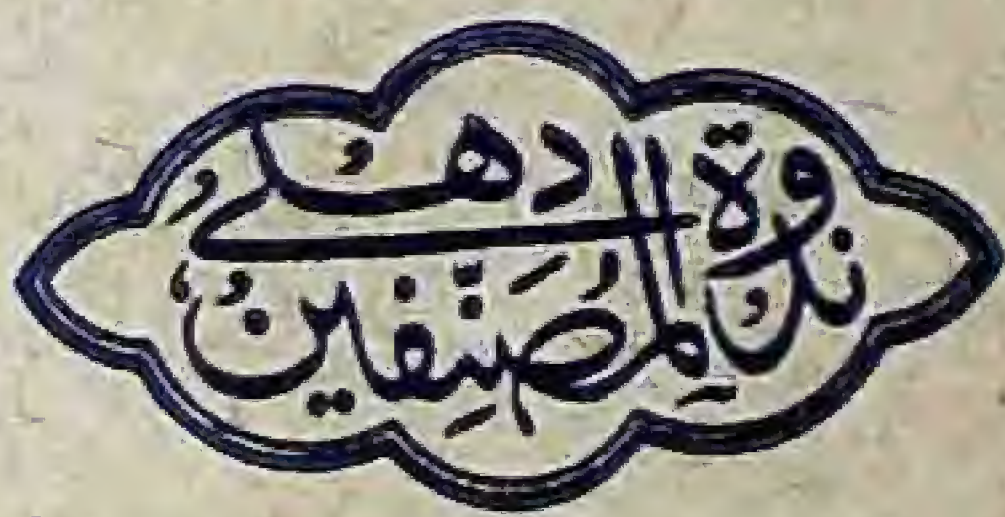 ندوة المصنفین دهلی